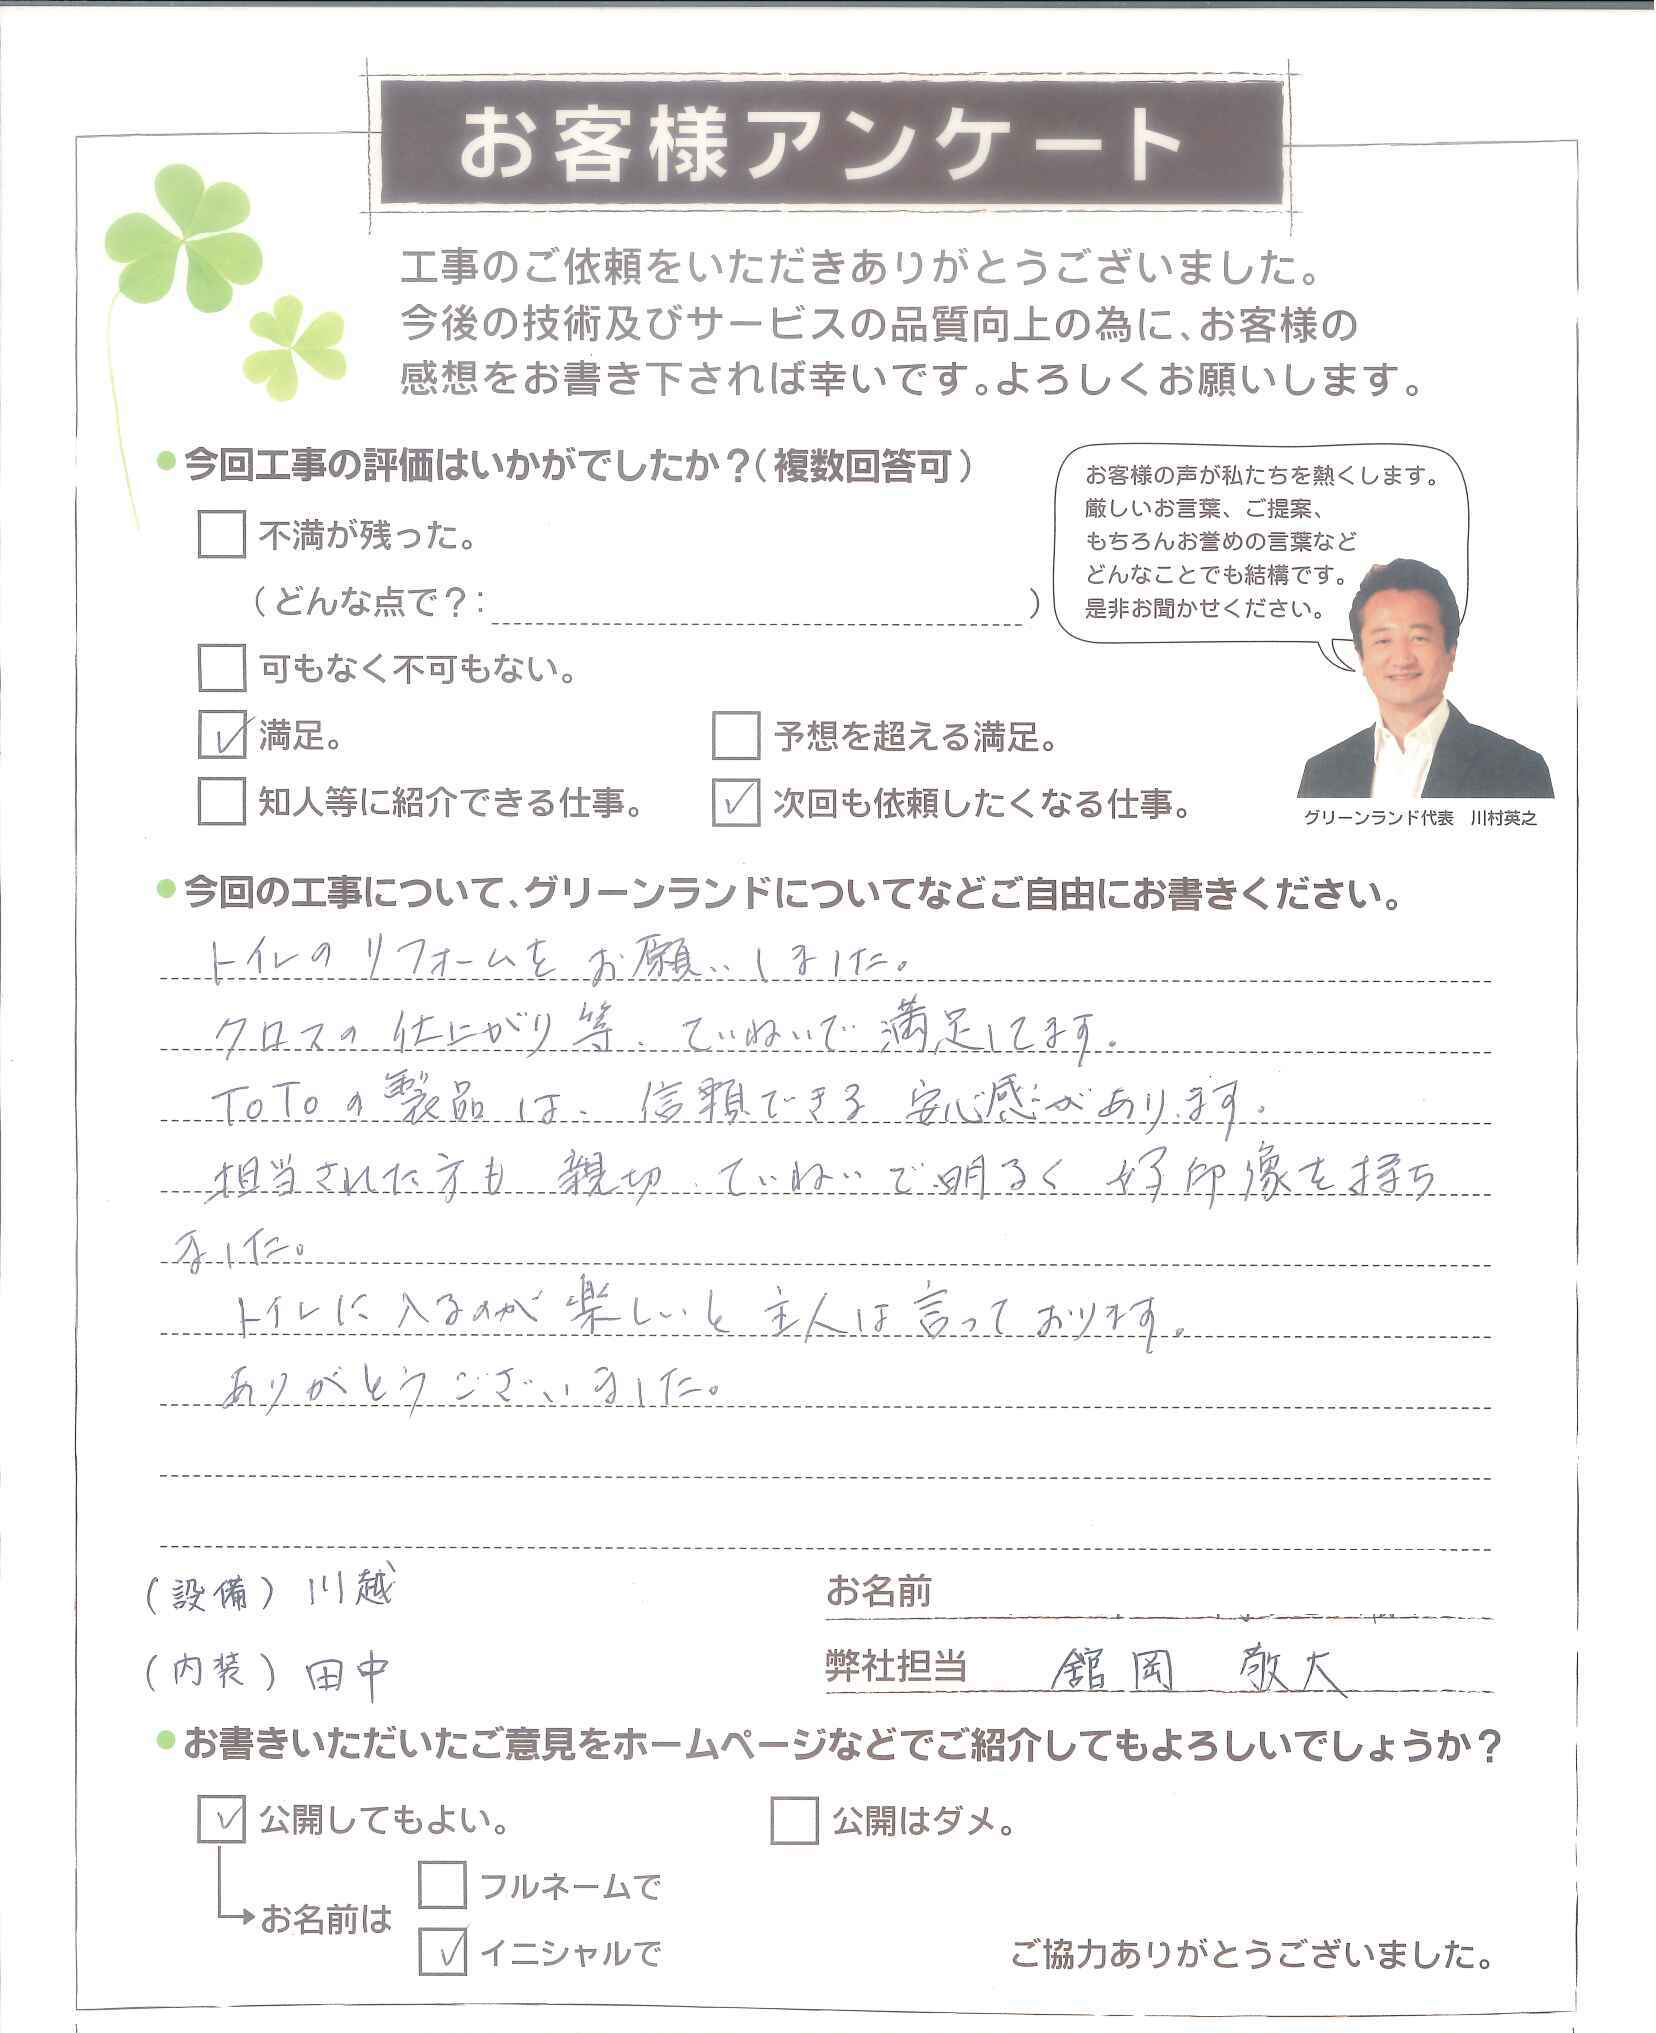 お客様アンケート
工事のご依頼をいただきありがとうございました。
今後の技術及びサービスの品質向上の為に、お客様の
感想をお書き下されば幸いです。よろしくお願いします。
●今回工事の評価はいかがでしたか？（複数回答可）
不満が残った。
（どんな点で？：　）
可もなく不可もない。
満足。　予想を超える満足。
知人等に紹介できる仕事。　次回も依頼したくなる仕事。
お客様の声が私たちを熱くします。
厳しいお言葉、ご提案、
もちろんお誉めの言葉など
どんなことでも結構です。
是非お聞かせください。
グリーンランド代表　川村英之
●今回の工事について、グリーンランドについてなどご自由にお書きください。
トイレのリフォームをお願いしました。
クロスの仕上がり等、ていねいで満足してます。
TOTOの製品は、信頼できる安心感があります。
担当された方も親切、ていねいで明るく好印像を持ち
ました。
トイレに入るのが楽しいと主人は言っております。
ありがとうございました。
（設備）川越
（内装）田中
お名前
弊社担当　舘岡　敬大
●お書きいただいたご意見をホームページなどでご紹介してもよろしいでしょうか？
公開してもよい。　公開はダメ。
お名前は
フルネームで
イニシャルで
ご協力ありがとうございました。